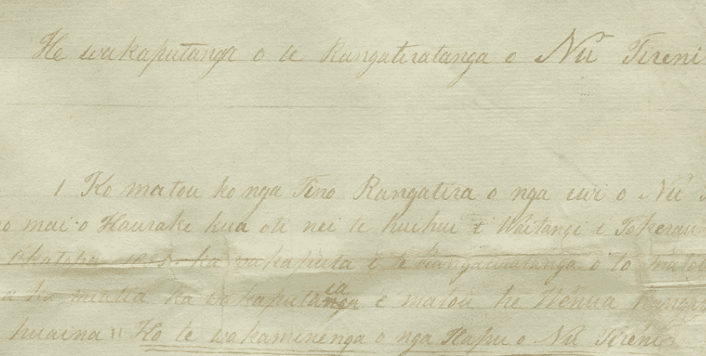 He wakaputanga o te Rangatiratanga o Nu Tireni
1 Ko matou ko nga Tino Rangatira o nga iwi o Nu
mai o Hauraki kua oti nei te huihui i Waitangi i Tokerau
ka wakaputa i te Rangatiratanga o to matou
ka meatia ka wakaputaia e matou he Wenua
huaina " Ko te wakaminenga o nga Hapu o Nu Tireni